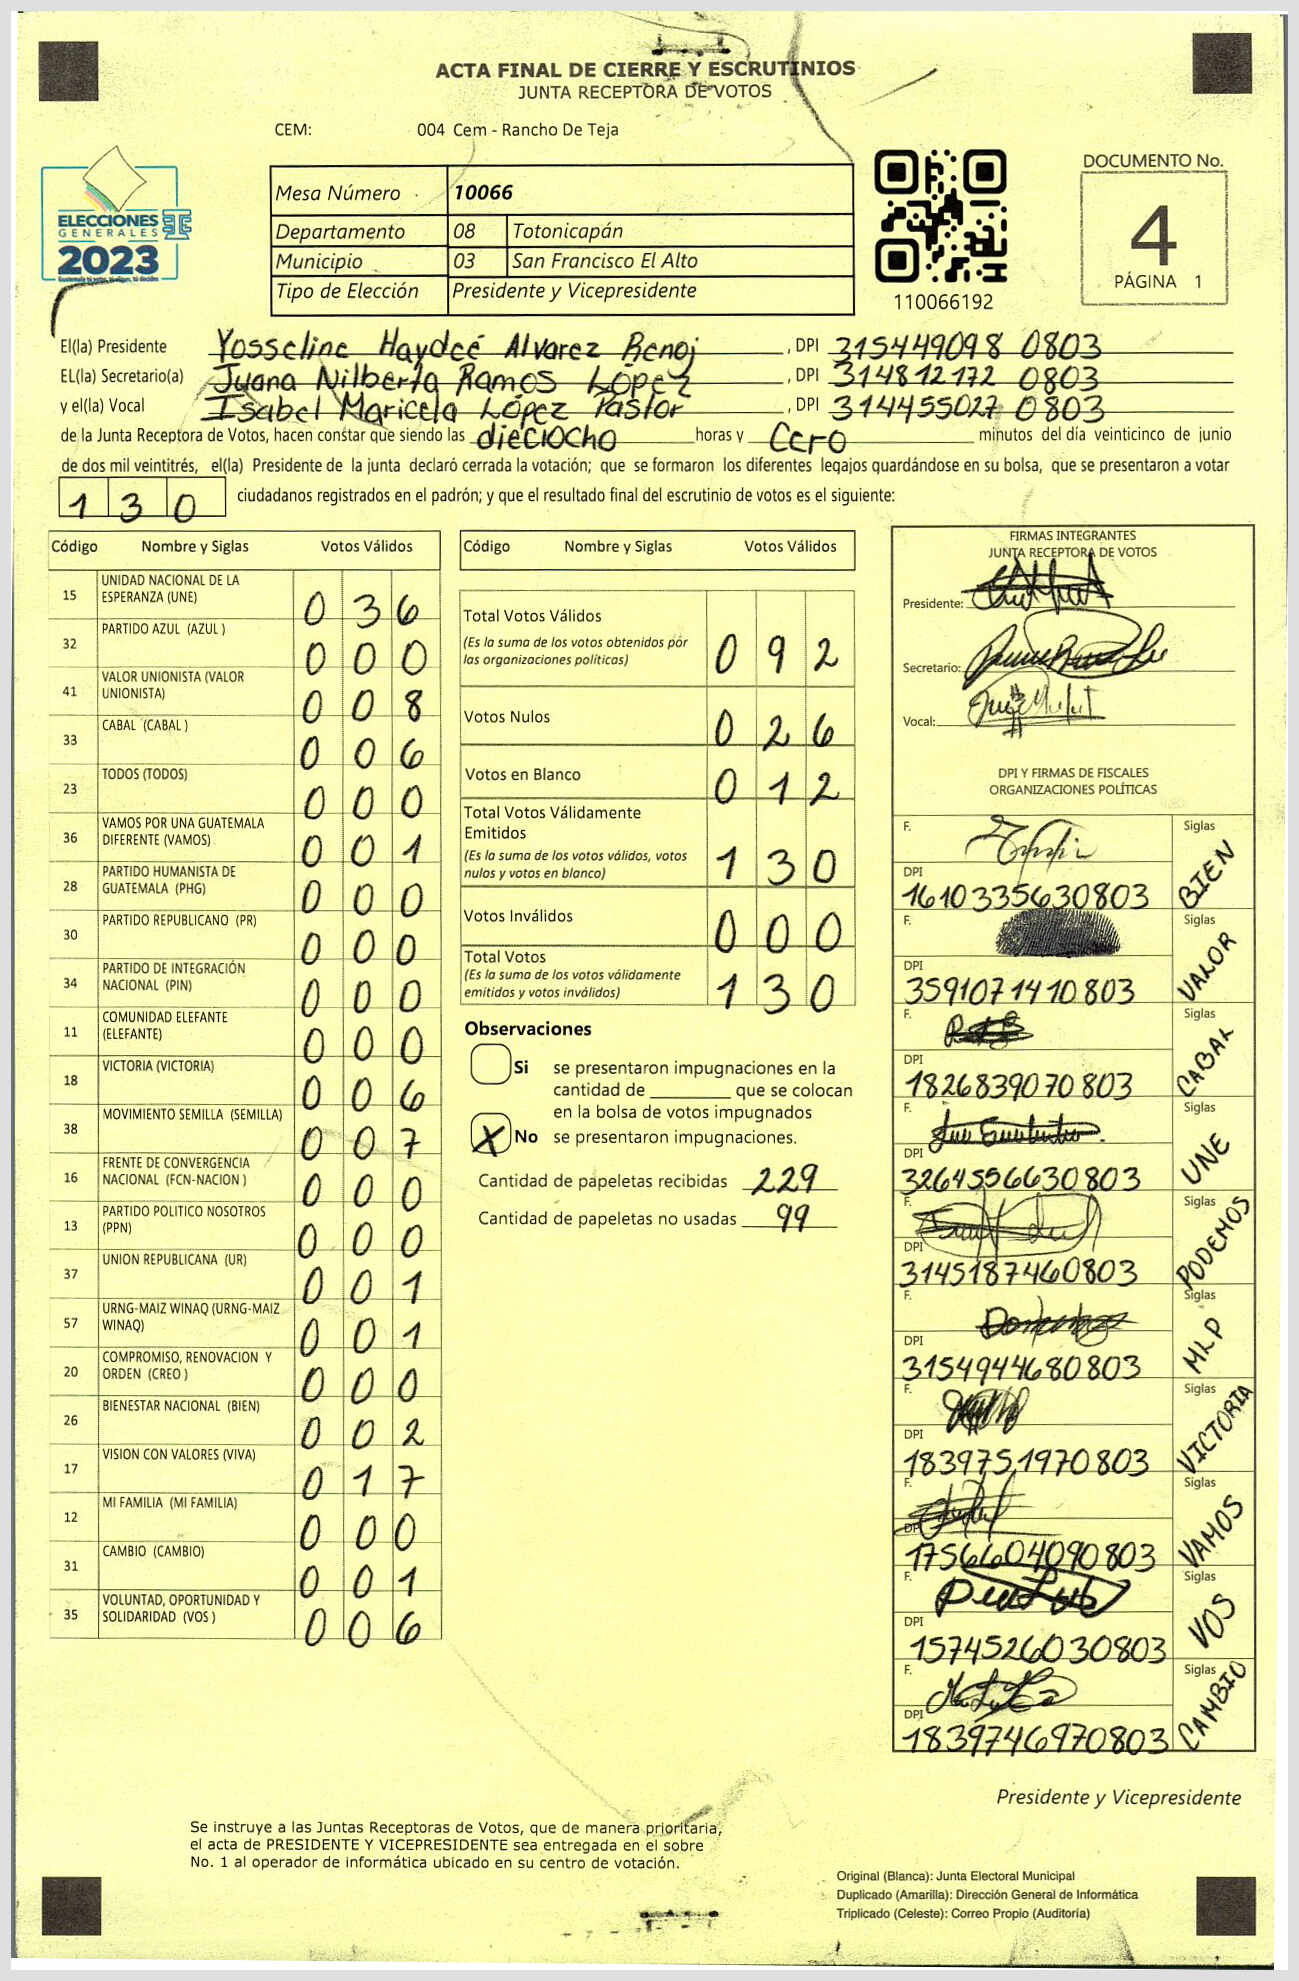 ACTA FINAL DE CIERRE Y ESCRUTINIOS
JUNTA RECEPTORA DE VOTOS
CEM: 004 Cem - Rancho De Teja
ELECCIONES
GENERALES
2023
Mesa Número 10066
Departamento 08 Totonicapán
Municipio 03 San Francisco El Alto
Tipo de Elección Presidente y Vicepresidente
110066192
DOCUMENTO No.
4
PÁGINA 1
El(la) Presidente Yosseline Haydeé Alvarez Renoj, DPI 315449098 0803
EL(la) Secretario(a) Juana Nilberta Ramos López, DPI 314812172 0803
y el(la) Vocal Isabel Maricela López Pastor, DPI 314455027 0803
de la Junta Receptora de Votos, hacen constar que siendo las dieciocho horas y cero minutos del día veinticinco de junio
de dos mil veintitrés, el(la) Presidente de la junta declaró cerrada la votación; que se formaron los diferentes legajos guardándose en su bolsa, que se presentaron a votar
130 ciudadanos registrados en el padrón; y que el resultado final del escrutinio de votos es el siguiente:
Código Nombre y Siglas Votos Válidos
15 UNIDAD NACIONAL DE LA ESPERANZA (UNE) 036
32 PARTIDO AZUL (AZUL ) 000
41 VALOR UNIONISTA (VALOR UNIONISTA) 008
33 CABAL (CABAL ) 006
23 TODOS (TODOS) 000
36 VAMOS POR UNA GUATEMALA DIFERENTE (VAMOS) 001
28 PARTIDO HUMANISTA DE GUATEMALA (PHG) 000
30 PARTIDO REPUBLICANO (PR) 000
34 PARTIDO DE INTEGRACIÓN NACIONAL (PIN) 000
11 COMUNIDAD ELEFANTE (ELEFANTE) 000
18 VICTORIA (VICTORIA) 006
38 MOVIMIENTO SEMILLA (SEMILLA) 007
16 FRENTE DE CONVERGENCIA NACIONAL (FCN-NACION ) 000
13 PARTIDO POLITICO NOSOTROS (PPN) 000
37 UNION REPUBLICANA (UR) 001
57 URNG-MAIZ WINAQ (URNG-MAIZ WINAQ) 001
20 COMPROMISO, RENOVACION Y ORDEN (CREO ) 000
26 BIENESTAR NACIONAL (BIEN) 002
17 VISION CON VALORES (VIVA) 017
12 MI FAMILIA (MI FAMILIA) 000
31 CAMBIO (CAMBIO) 001
35 VOLUNTAD, OPORTUNIDAD Y SOLIDARIDAD (VOS ) 006
Código Nombre y Siglas Votos Válidos
Total Votos Válidos 092
(Es la suma de los votos obtenidos por
las organizaciones políticas)
Votos Nulos 026
Votos en Blanco 012
Total Votos Válidamente
Emitidos 130
(Es la suma de los votos válidos, votos
nulos y votos en blanco)
Votos Inválidos 000
Total Votos 130
(Es la suma de los votos válidamente
emitidos y votos inválidos)
Observaciones
Si se presentaron impugnaciones en la
cantidad de ________ que se colocan
en la bolsa de votos impugnados
X No se presentaron impugnaciones.
Cantidad de papeletas recibidas 229
Cantidad de papeletas no usadas 99
FIRMAS INTEGRANTES
JUNTA RECEPTORA DE VOTOS
Presidente:
Secretario:
Vocal:
DPI Y FIRMAS DE FISCALES
ORGANIZACIONES POLÍTICAS
F. Siglas BIEN
DPI 1610335630803
F. Siglas VALOR
DPI 3591071410803
F. Siglas CABAL
DPI 1826839070803
F. Siglas UNE
DPI 3264556630803
F. Siglas PODEMOS
DPI 3145187460803
F. Siglas MLP
DPI 3154944680803
F. Siglas VICTORIA
DPI 1839751970803
F. Siglas VAMOS
DPI 1756604090803
F. Siglas VOS
DPI 1574526030803
F. Siglas CAMBIO
DPI 1839746970803
Presidente y Vicepresidente
Se instruye a las Juntas Receptoras de Votos, que de manera prioritaria,
el acta de PRESIDENTE Y VICEPRESIDENTE sea entregada en el sobre
No. 1 al operador de informática ubicado en su centro de votación.
Original (Blanca): Junta Electoral Municipal
Duplicado (Amarilla): Dirección General de Informática
Triplicado (Celeste): Correo Propio (Auditoría)